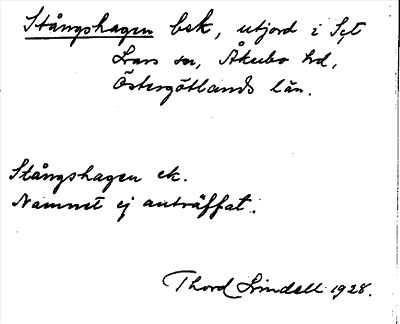 Stångshagen bek, utjord i S:t
Lars sn, Åkerbo hd,
Östergötlands län.
Stångshagen ek.
Namnet ej anträffat.
Thord Lindell 1928.